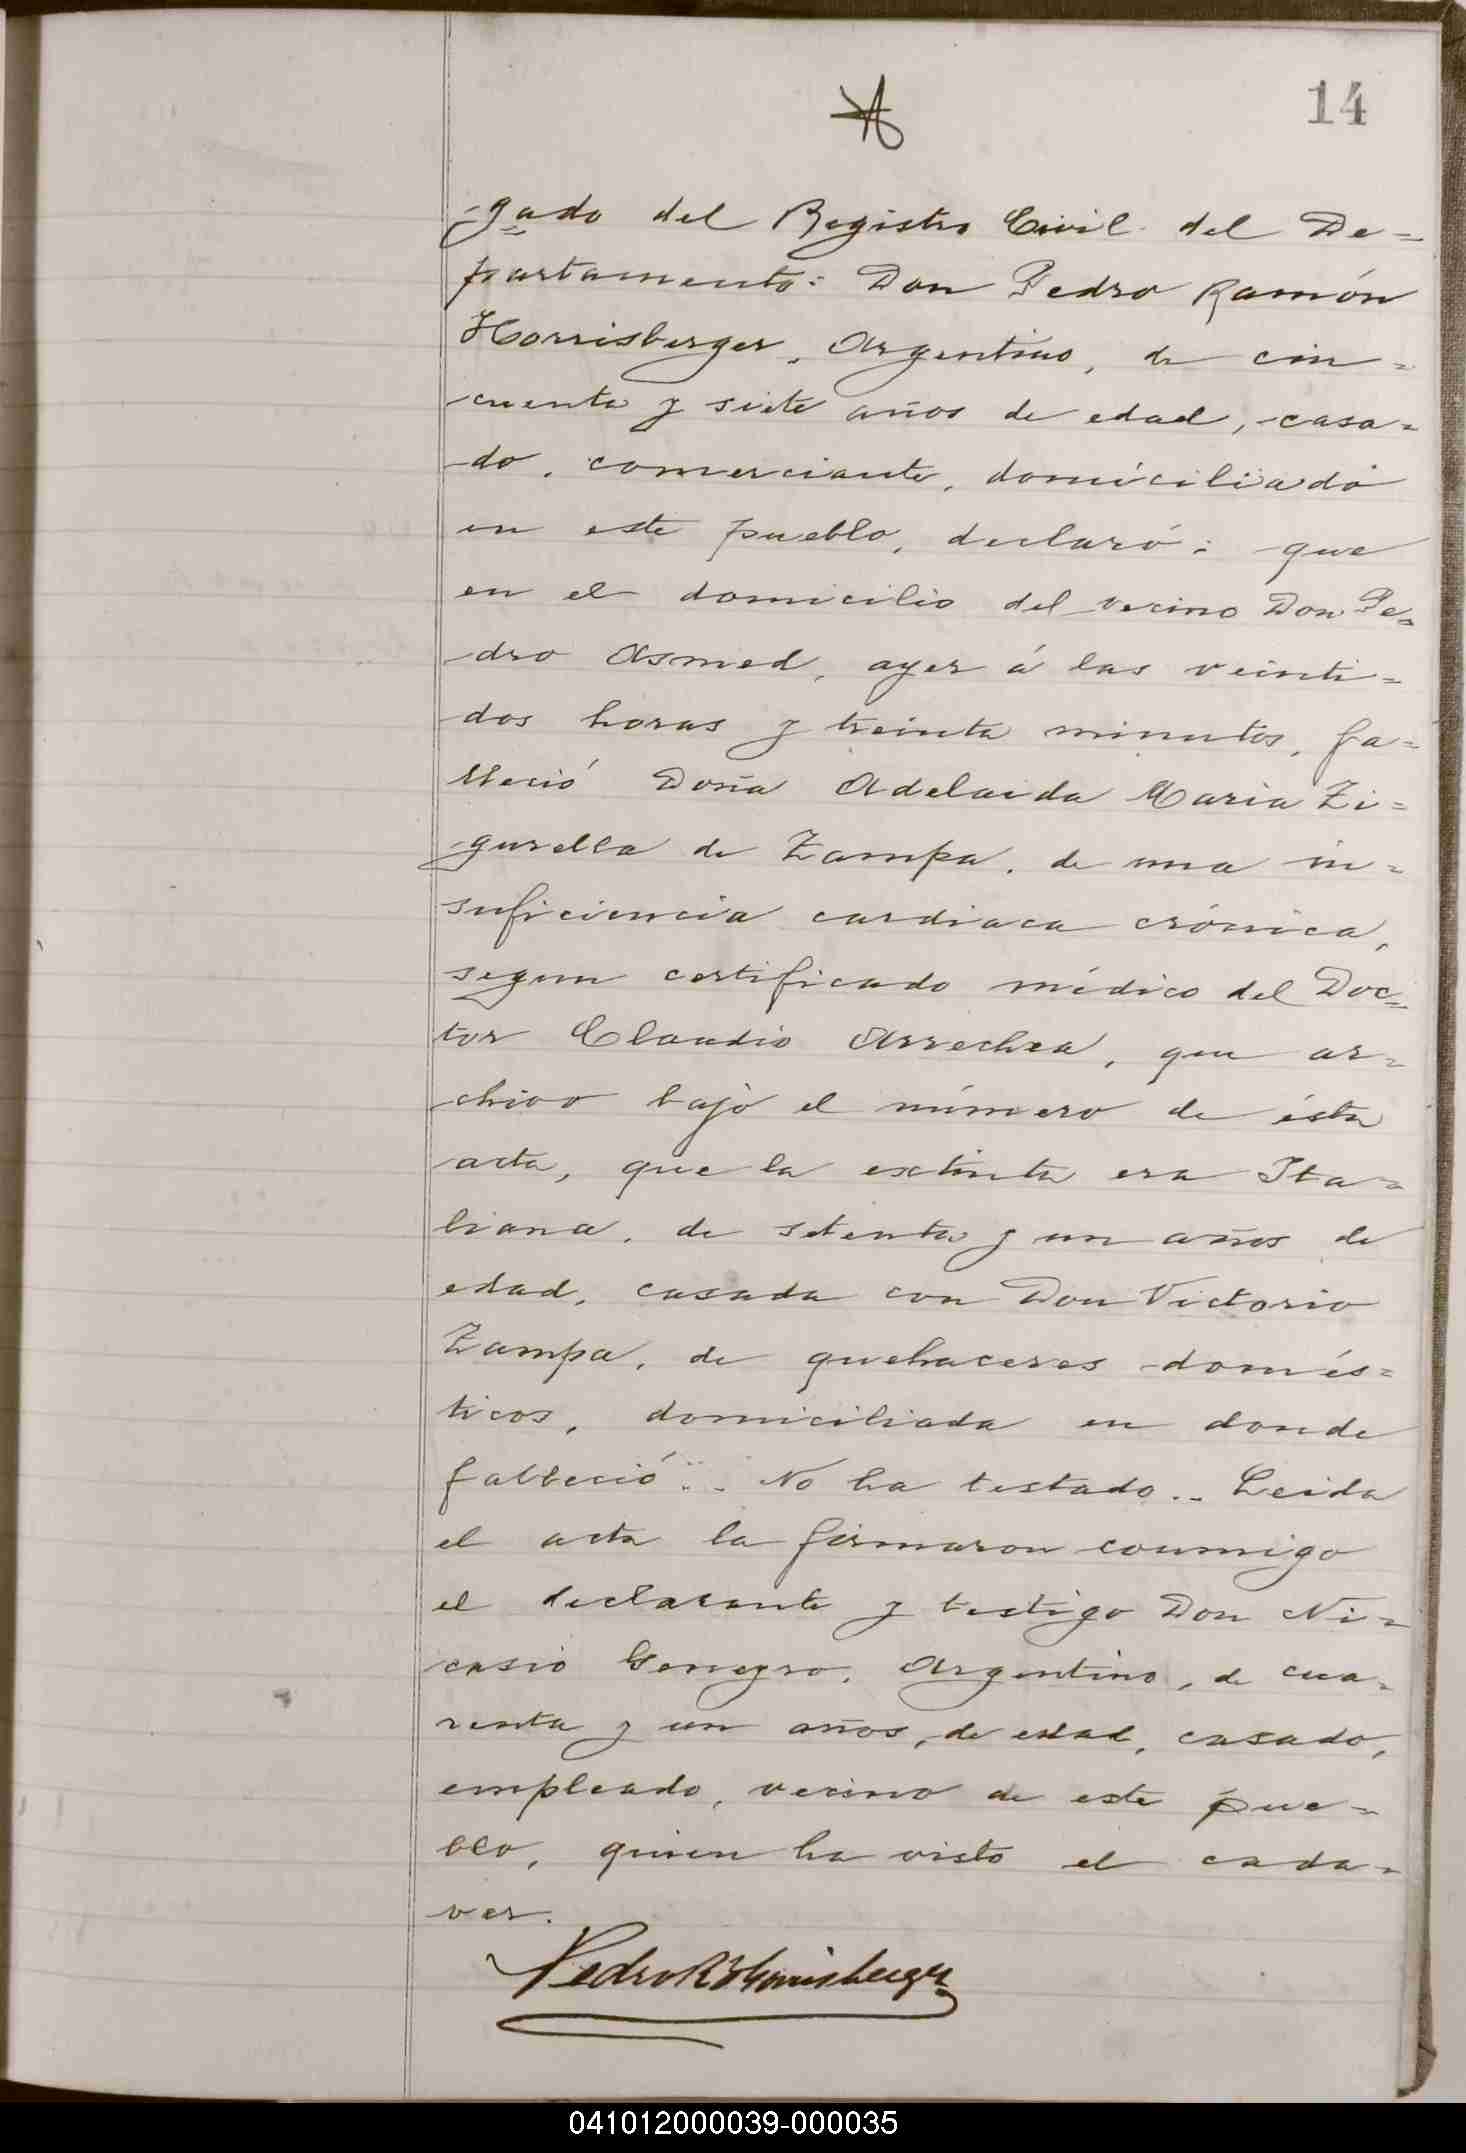 14
-gado del Registro Civil del De=
partamento: Don Pedro Ramón
Horrisberger, Argentino, de cin=
cuenta y siete años de edad, casa=
do, comerciante, domiciliado
en este pueblo, declaró: que
en el domicilio del vecino Don Pe=
dro Asmed, ayer á las veinti=
dos horas y treinta minutos, fa=
lleció Doña Adelaida Maria Zi=
gurella de Zampa, de una in=
suficiencia cardiaca crónica,
segun certificado médico del Doc=
tor Claudio Arrechea, que ar=
chivo bajo el número de ésta
acta, que la extinta era Ita=
liana, de setenta y un años de
edad, casada con Don Victorio
Zampa, de quehaceres domés=
ticos, domiciliada en donde
falleció.. No ha testado.. Leida
el acta la firmaron conmigo
el declarante y testigo Don Ni=
casio, Argentino, de cua=
renta y un años, de edad, casado,
empleado, vecino de este pue=
blo, quien ha visto el cada=
ver.
Pedro R Horrisberger
041012000039-000035